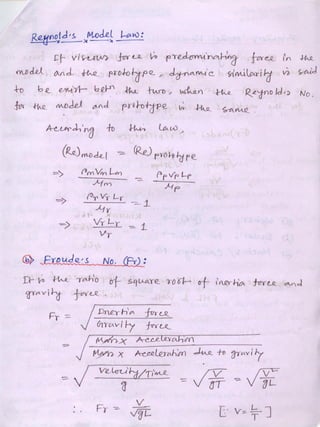 Reynold's Model Law:
If viscous force is predominating force in the
model and the prototype, dynamic similarity is said
to be exist betn the two, when the Reynold's No.
for the model and prototype is the same.
According to this law,
(Re)model = (Re)prototype
=> ρmVmLm / μm = ρpVpLp / μp
=> ρrVrLr / μr = 1
=> VrLr / νr = 1
(b) Froude's No. (Fr):
It is the ratio of square root of inertia force and
gravity force.
Fr = √(Inertia force / Gravity force)
= √(Mass x Acceleration / Mass x Acceleration due to gravity)
= √(Velocity/Time / g) = √(V / gT) = √(V² / gL)
∴ Fr = V / √gL [∵ V = L/T]